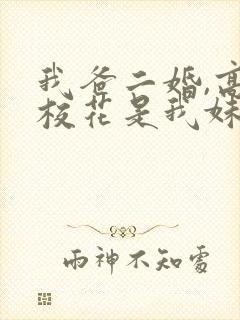 我爸二婚,高
校花是我妹
雨神不知处